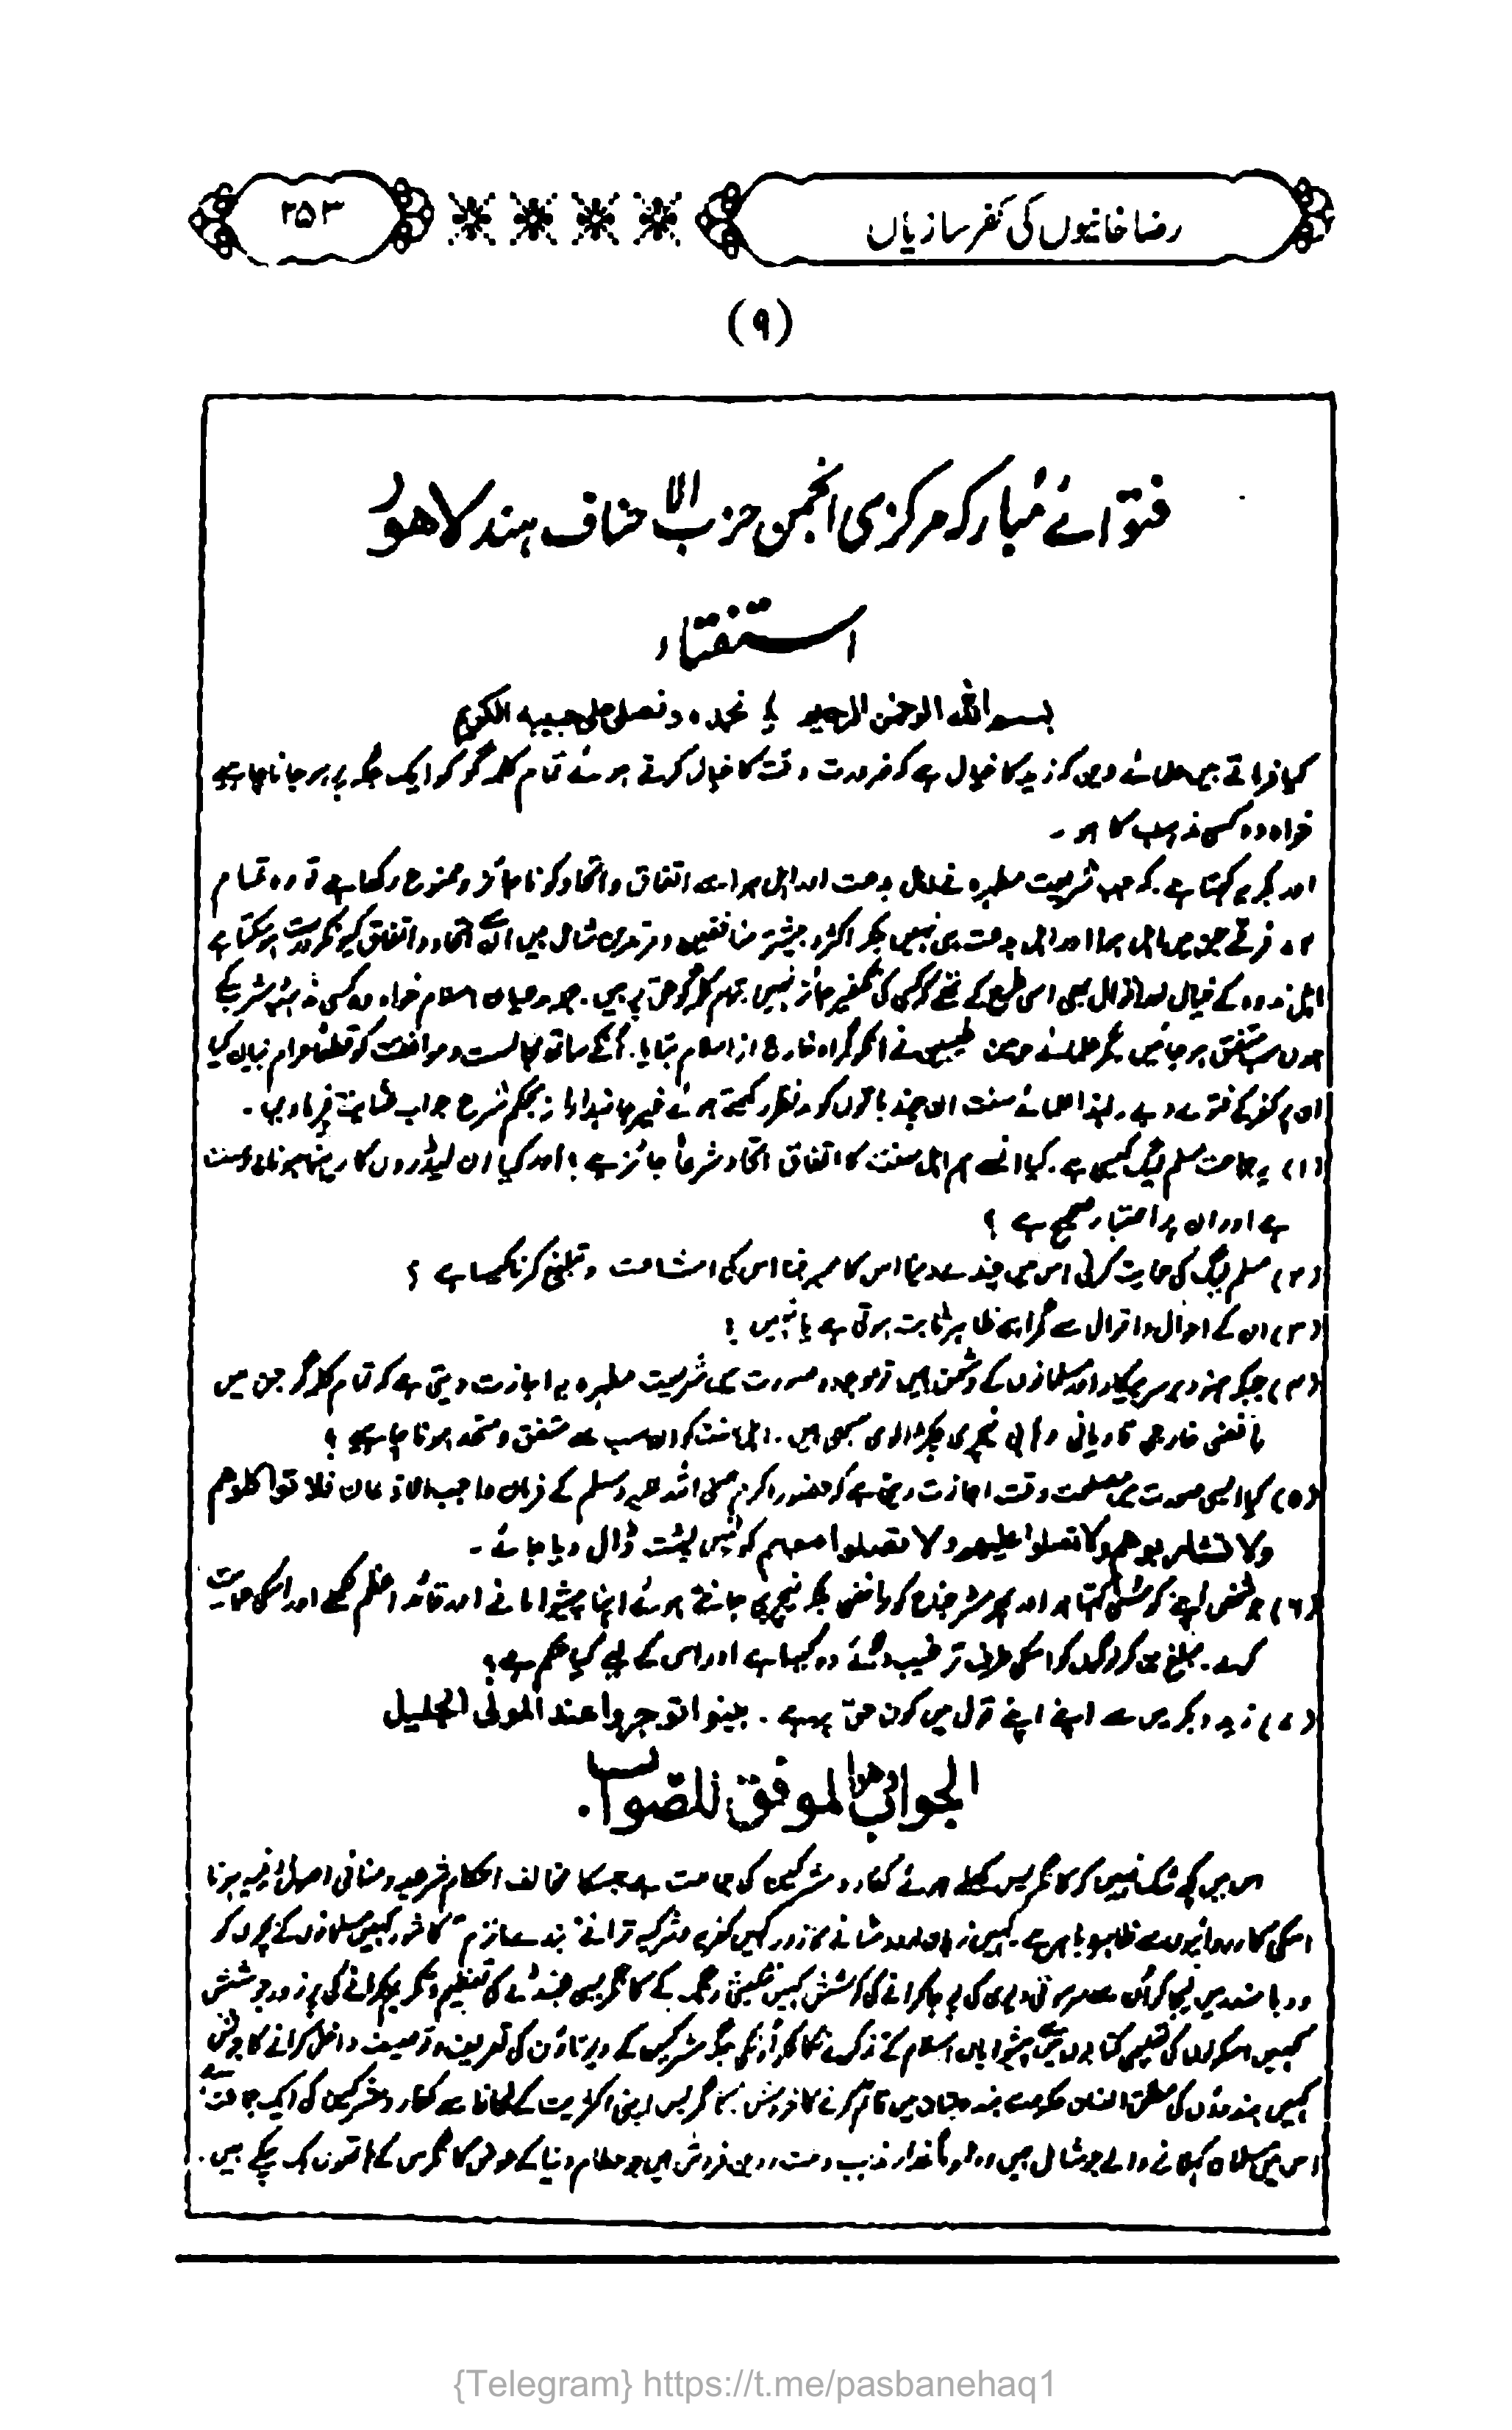 رضاخانیوں کی کفر سازیاں
۲۵۳
(۹)
فتوائے مُبارکہ مرکزی انجمن حزب الاحناف ہند لاھور
استفتاء
بسم اللہ الرحمٰن الرحیم نحمدہ ونصلی علی حبیبہ الکریم
کیا فرماتے ہیں علمائے دین کہ زید کا خیال ہے کہ ضرورت وقت کا خیال کرتے ہوئے تمام کلمہ گو کو ایک جگہ پر ہو جانا چاہیے
خواہ وہ کسی مذہب کا ہو۔
اور بکر یہ کہتا ہے۔ کہ جب شریعت مطہرہ نے اہل بدعت اور اہل ہوا سے اتفاق و اتحاد کو ناجائز و ممنوع رکھا ہے تو وہ تمام
فرقے جن میں اہل ہوا اور اہل بدعت ہی نہیں بلکہ اکثر و بیشتر منافقین و مرتدین شامل ہیں ان سے اتحاد و اتفاق کیونکر درست ہو سکتا ہے
اہل ندوہ کے خیال اور اقوال بھی اسی طرح کے تھے کہ کسی کی تکفیر جائز نہیں۔ تمام کلمہ گو حق پر ہیں۔ جملہ مدعیان اسلام خواہ وہ کسی مذہب مشرب کے
ہوں سب متفق ہو جائیں مگر علمائے حرمین طیبین نے انکو گمراہ خارج از اسلام بتایا۔ اُنکے ساتھ مجالست و موافقت کو قطعاً حرام بیان کیا
ان پر کفر کے فتوے دیے۔ لہذا علمائے سنت ان چند باتوں کو مدنظر رکھتے ہوئے غیر جانبدارانہ بحکم شرع جواب عنایت فرماویں۔
(۱) یہ جماعت مسلم لیگ کیسی ہے۔ کیا انسے ہم اہل سنت کا اتفاق اتحاد شرعاً جائز ہے؟ اور کیا ان لیڈروں کا رہنما ہونا درست
ہے اور ان پر اعتبار صحیح ہے؟
(۲) مسلم لیگ کی حمایت کرنی اس میں چندے دینا اس کا ممبر بننا اس کی اشاعت و تبلیغ کرنا کیسا ہے؟
(۳) ان کے احوال و اقوال سے گمراہی ظاہر ثابت ہوتی ہے یا نہیں؟
(۴) جبکہ ہنود برسرپیکار اور مسلمانوں کے دشمن ہیں تو موجودہ صورت میں شریعت مطہرہ یہ اجازت دیتی ہے کہ تمام کلمہ گو جن میں
رافضی خارجی قادیانی وہابی نیچری چکڑالوی سبھی ہیں۔ اہلسنت کو ان سب سے متفق و متحد ہونا چاہیے؟
(۵) کیا ایسی صورت میں مصلحت وقت اجازت دیتی ہے کہ حضور اکرم صلی اللہ علیہ وسلم کے فرمان واجب الاذعان فلا تواکلوھم
ولا تشاربوھم ولا تصلوا علیھم ولا تصلوا معھم کو پس پشت ڈال دیا جائے۔
(۶) جو شخص اپنے کو سنی کہتا ہو اور پھر مسٹر جناح کو رافضی بلکہ نیچری جانتے ہوئے اپنا پیشوا مانے اور قائد اعظم لکھے اور اسکی حمایت
کرے۔ مبلغ بن کر لوگوں کو اسکی طرف ترغیب دلائے وہ کیسا ہے اور اس کے لیے کیا حکم ہے؟
(۷) زید و بکر میں سے اپنے اپنے قول میں کون حق پر ہے۔ بینوا توجروا عند المولی الجلیل
الجواب وھو الموفق للصواب۔
اس میں کچھ شک نہیں کہ کانگریس کھلے ہوئے کفار و مشرکین کی جماعت ہے جسکا مخالف احکام شرعیہ و منافی اصول دینیہ ہونا
اسکی کارروائیوں سے ظاہر و باہر ہے۔ کہیں زبان اردو مٹانے کا زور کہیں کفریہ مشرکیہ ترانے "بندے ماترم" کا شور کہیں مسلمانوں کے بچوں کو
ودیا مندر میں لیجا کر اُن سے سرسوتی دیوی کی پوجا کرانے کی کوشش کہیں رنگ کے کانگریسی جھنڈے کی تعظیم و تکریم کرانے کی پر زور جوشش
کہیں اسکولوں کی تعلیمی کتابوں سے پیشوایان اسلام کے تذکرے نکالکر اُنکی جگہ مشرکین کے دیوتاؤں کی تعریف و توصیف داخل کرانے کا جوش
کہیں ہندوؤں کی مطلق العنان حکومت ہندوستان میں قائم کرنے کا خروش۔ کانگریس اپنی اکثریت کے لحاظ سے کفار و مشرکین کی ایک جماعت ہے
اس میں مسلمان کہلانے والے جو شامل ہیں وہ عموماً غدار مذہب و ملت و دین فروش ہیں جو حطام دنیا کے عوض کانگرس کے ہاتھوں بک چکے ہیں۔
{Telegram} https://t.me/pasbanehaq1